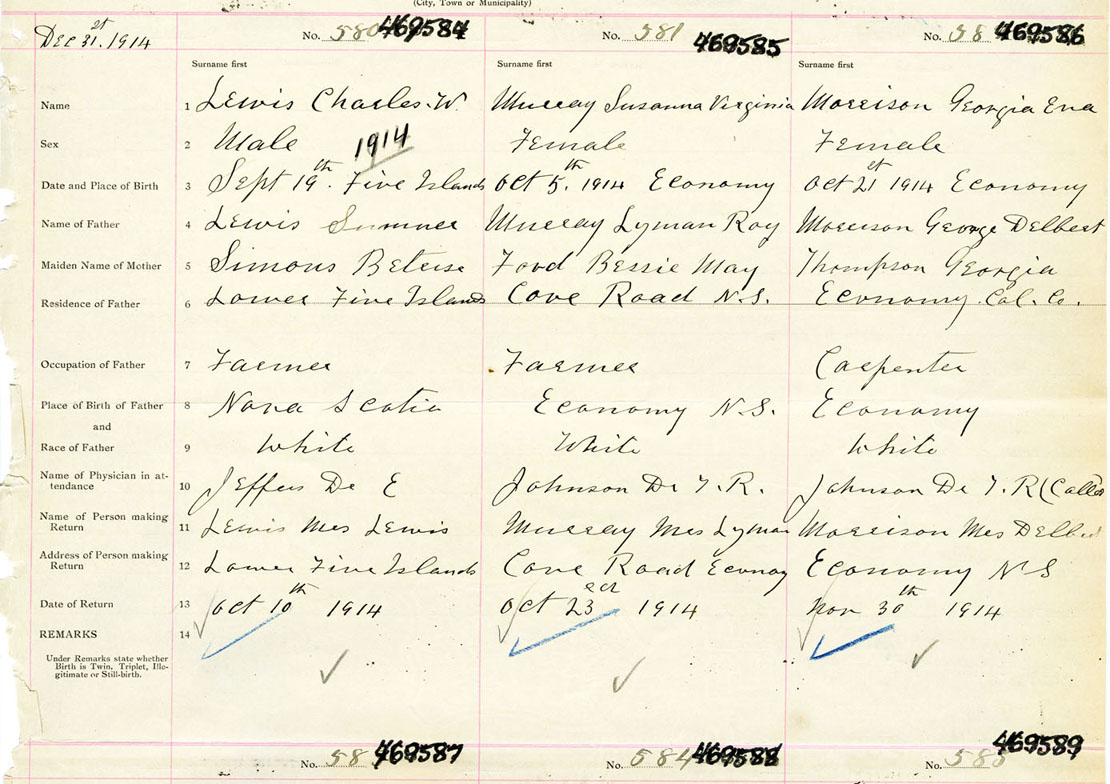 (City, Town or Municipality)
Dec 31st, 1914 No. 580 469584 No. 581 469585 No. 58 469586
Surname first Surname first Surname first
Name 1 Lewis Charles. W. Murray Susanna Virginia Morrison Georgia Ena
Sex 2 Male 1914 Female Female
Date and Place of Birth 3 Sept 19th. Five Islands Oct 5th. 1914 Economy Oct 21st 1914 Economy
Name of Father 4 Lewis Sumner Murray Lyman Roy Morrison George Delbert
Maiden Name of Mother 5 Simons Ford Bessie May Thompson Georgia
Residence of Father 6 Lower Five Islands Cove Road N.S. Economy. Col. Co.
Occupation of Father 7 Farmer Farmer Carpenter
Place of Birth of Father 8 Nova Scotia Economy N.S. Economy
and
Race of Father 9 White White White
Name of Physician in at-
tendance 10 Jeffers Dr E Johnson Dr T.R. Johnson Dr T.R (Called
Name of Person making
Return 11 Lewis Mrs Lewis Murray Mrs Lyman Morrison Mrs Delbert
Address of Person making
Return 12 Lower Five Islands Cove Road Economy Economy N S
Date of Return 13 Oct 10th 1914 Oct 23rd 1914 Nov 30th 1914
REMARKS 14
Under Remarks state whether
Birth is Twin, Triplet, Ille-
gitimate or Still-birth.
No. 58 469587 No. 584 469588 No. 58 469589